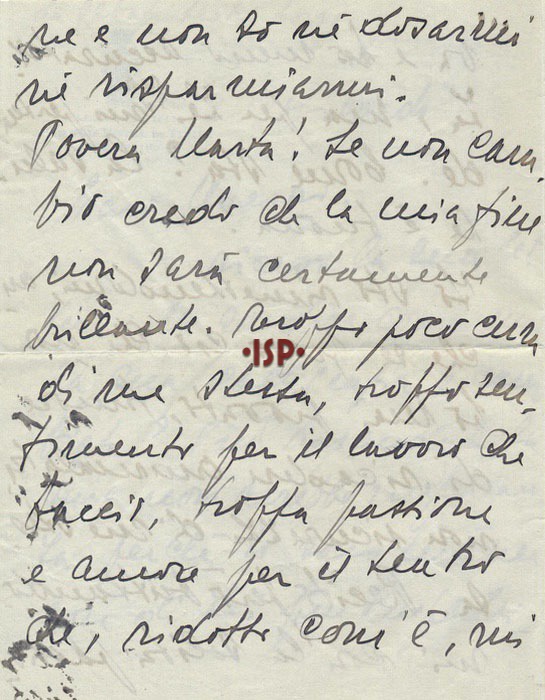 ne e non so né dosarmi
né risparmiarmi.
Povera Marta! Se non cam,
bio credo che la mia fine
non sarà certamente
brillante. Troppo poco cura
·ISP·
di me stessa, troppo sen,
timento per il lavoro che
faccio, troppa passione
e amore per il teatro
che, ridotto com'è, mi